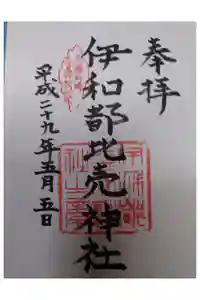 奉拝
伊和都比売神社
平成二十九年五月五日